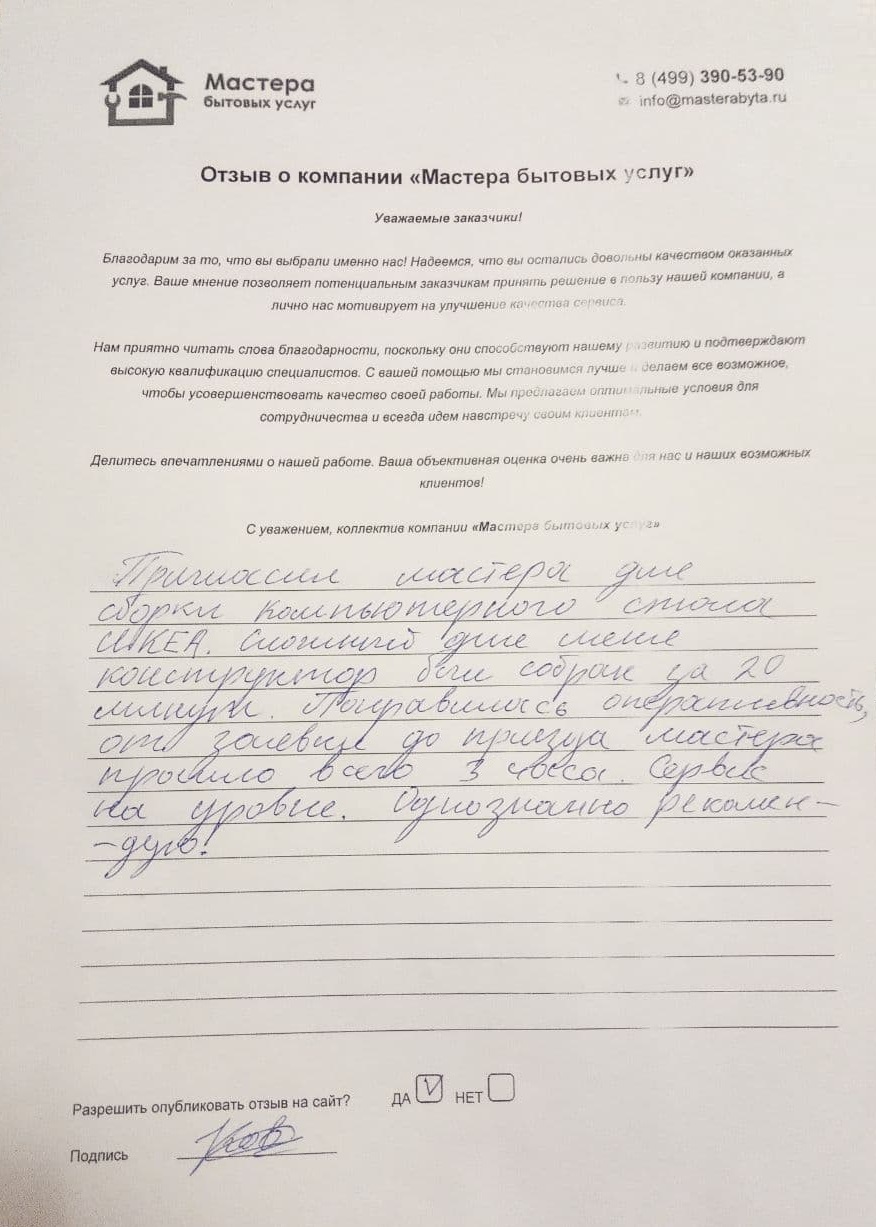 Мастера
бытовых услуг
8 (499) 390-53-90
info@masterabyta.ru
Отзыв о компании «Мастера бытовых услуг»
Уважаемые заказчики!
Благодарим за то, что вы выбрали именно нас! Надеемся, что вы остались довольны качеством оказанных
услуг. Ваше мнение позволяет потенциальным заказчикам принять решение в пользу нашей компании, а
лично нас мотивирует на улучшение качества сервиса.
Нам приятно читать слова благодарности, поскольку они способствуют нашему развитию и подтверждают
высокую квалификацию специалистов. С вашей помощью мы становимся лучше и делаем все возможное,
чтобы усовершенствовать качество своей работы. Мы предлагаем оптимальные условия для
сотрудничества и всегда идем навстречу своим клиентам.
Делитесь впечатлениями о нашей работе. Ваша объективная оценка очень важна для нас и наших возможных
клиентов!
С уважением, коллектив компании «Мастера бытовых услуг»
Пригласил мастера для
сборки компьютерного стола
ИКЕА. Сложный для меня
конструктор был собран за 20
минут. Понравилась оперативность,
от заявки до приезда мастера
прошло всего 3 часа. Сервис
на уровне. Однозначно рекомен-
-дую!
Разрешить опубликовать отзыв на сайт? ДА V НЕТ
Подпись